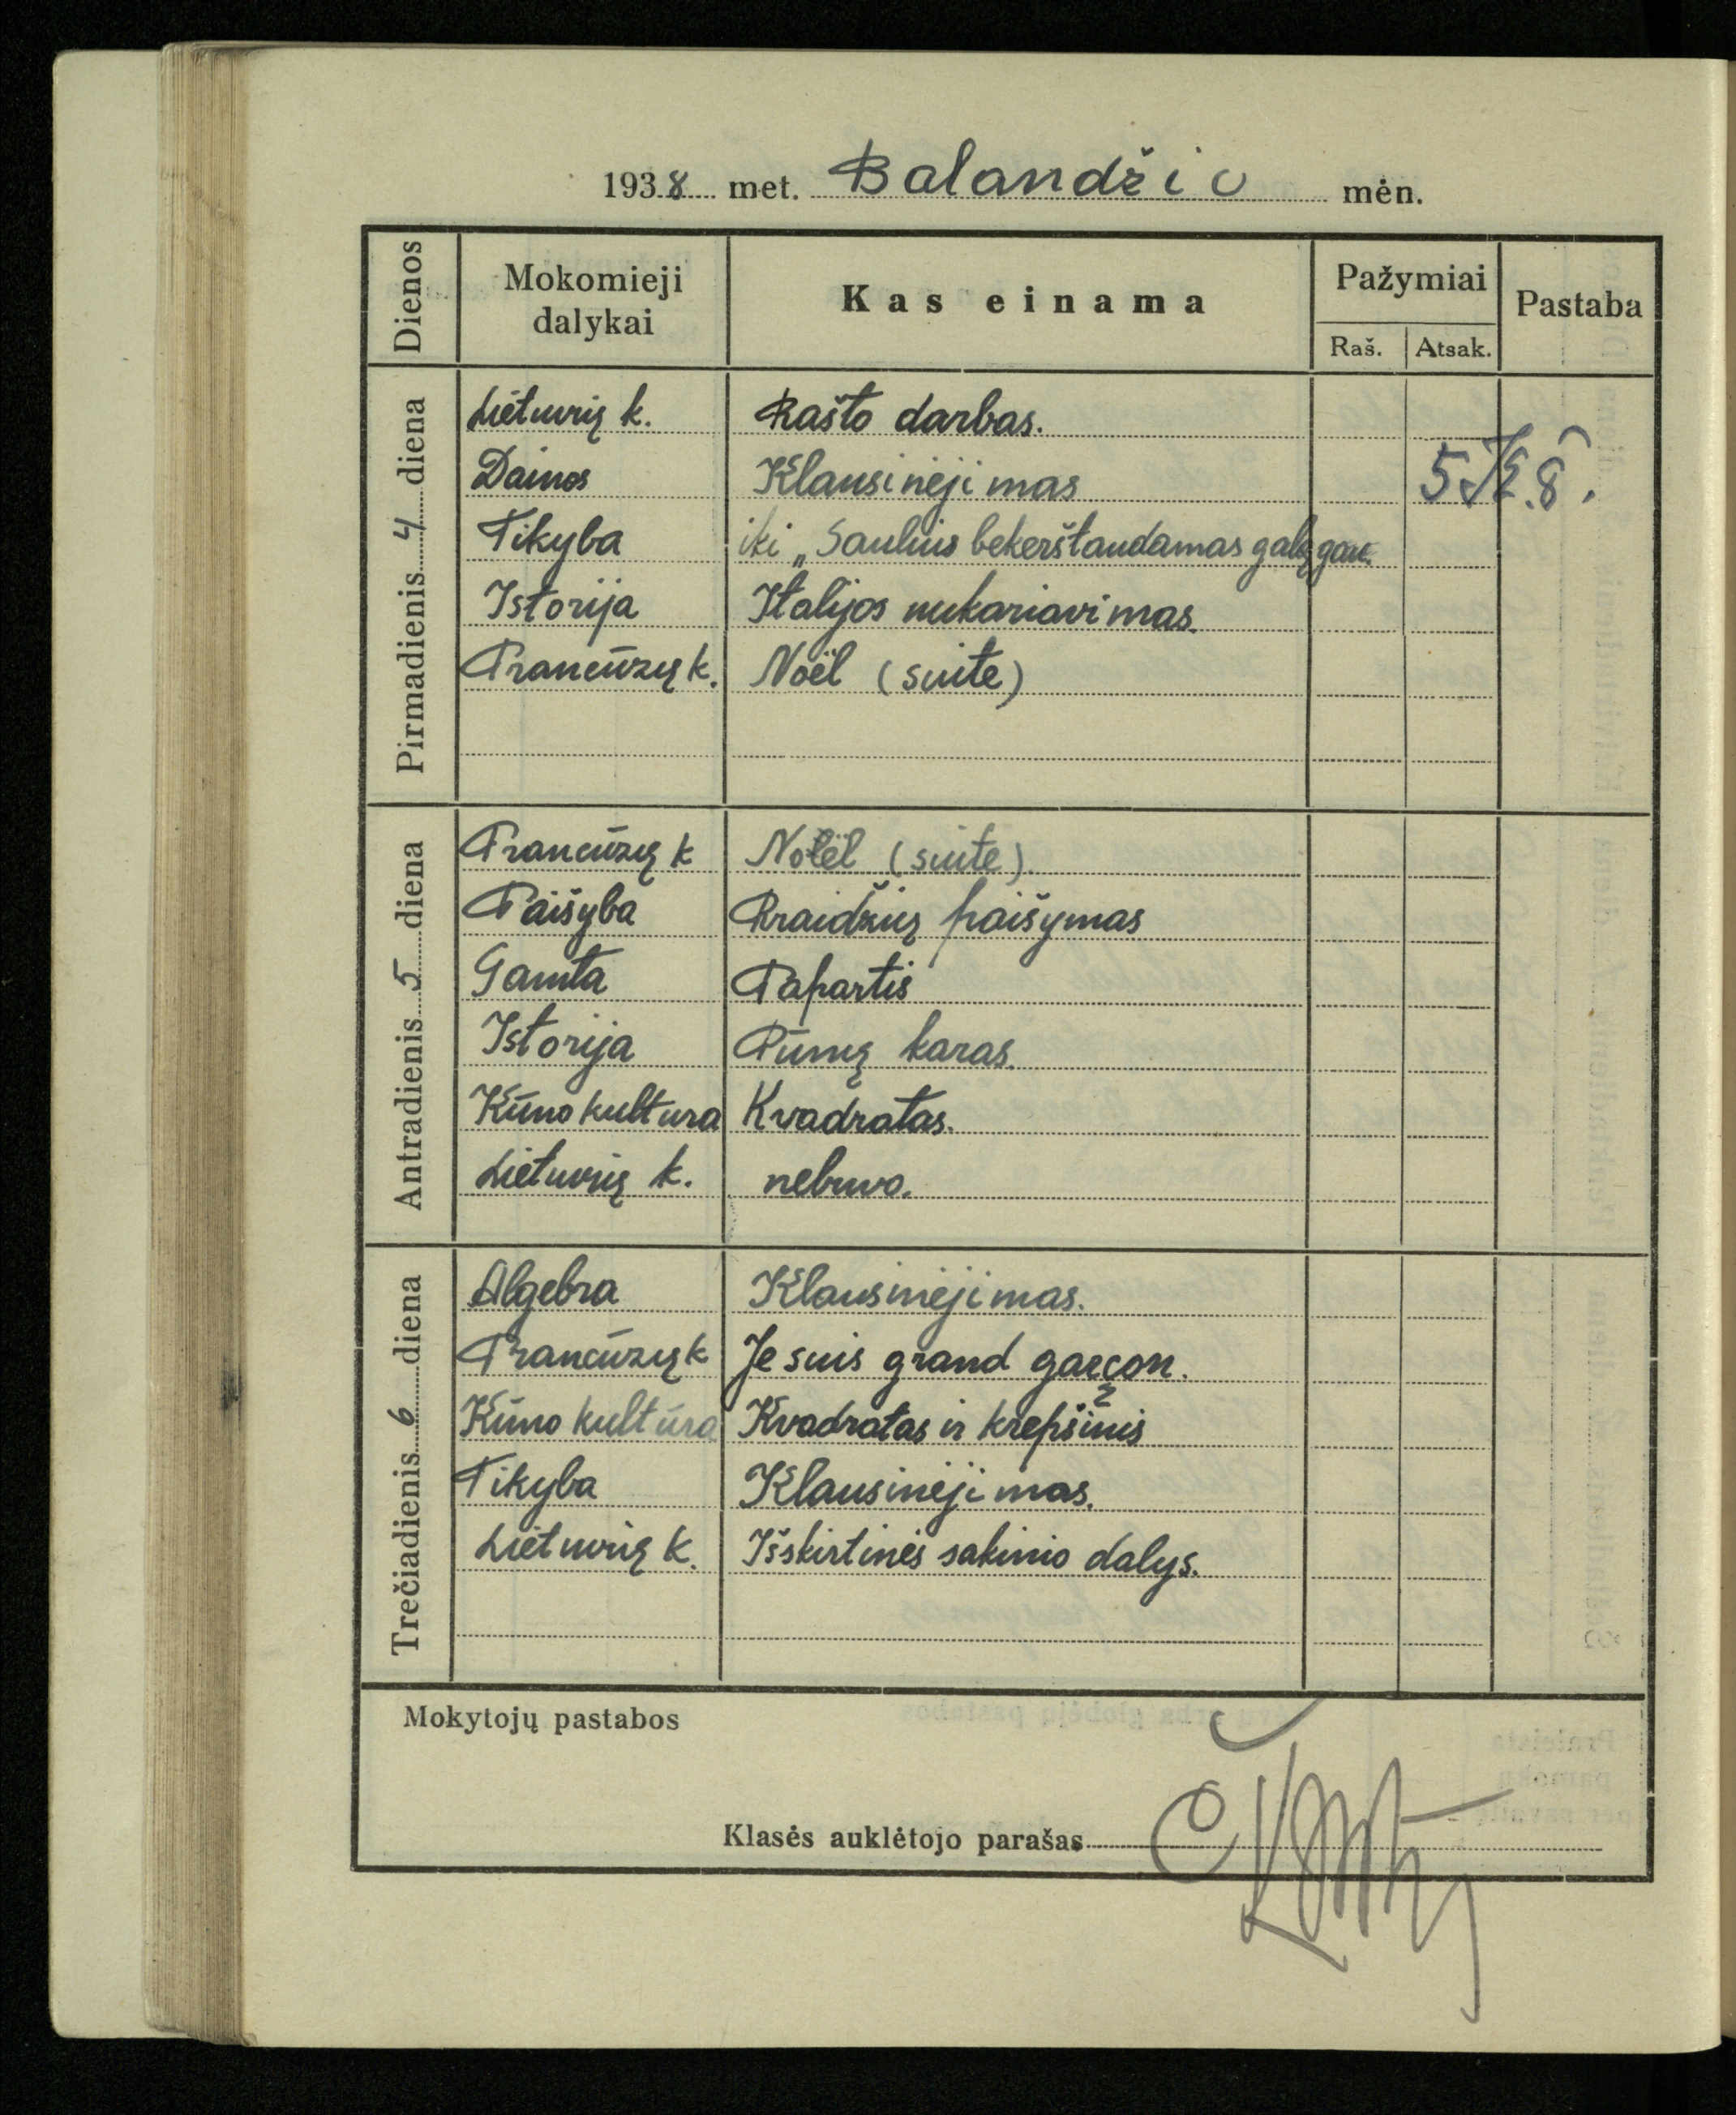 1938 met. Balandžio mėn.
Dienos
Mokomieji dalykai
Kas einama
Pažymiai
Raš. Atsak.
Pastaba
Pirmadienis 4 diena
Lietuvių k. Rašto darbas.
Dainos Klausinėjimas 5
Tikyba iki „Saulius bekerštaudamas galą gau.
Istorija Italijos nukariavimas.
Prancūzų k. Noël (suite)
Antradienis 5 diena
Prancūzų k Noël (suite).
Paišyba Raidžių paišymas
Gamta Papartis
Istorija Pūnų karas.
Kūno kultura Kvadratas.
Lietuvių k. nebuvo.
Trečiadienis 6 diena
Algebra Klausinėjimas.
Prancūzų k Je suis grand garçon.
Kūno kultūra Kvadratas ir krepšinis
Tikyba Klausinėjimas.
Lietuvių k. Išskirtinės sakinio dalys.
Mokytojų pastabos
Klasės auklėtojo parašas